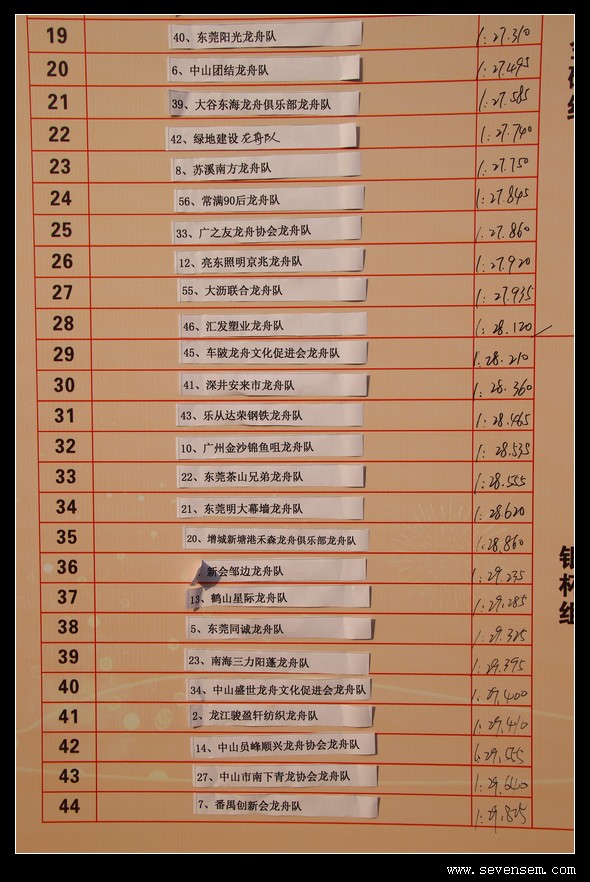 19 40、东莞阳光龙舟队 1:27.310
20 6、中山团结龙舟队 1:27.495
21 39、大谷东海龙舟俱乐部龙舟队 1:27.585
22 42、绿地建设龙舟队 1:27.740
23 8、苏溪南方龙舟队 1:27.750
24 56、常满90后龙舟队 1:27.845
25 33、广之友龙舟协会龙舟队 1:27.860
26 12、亮东照明京兆龙舟队 1:27.920
27 55、大沥联合龙舟队 1:27.935
28 46、汇发塑业龙舟队 1:28.120
29 45、车陂龙舟文化促进会龙舟队 1:28.210
30 41、深井安来市龙舟队 1:28.360
31 43、乐从达荣钢铁龙舟队 1:28.465
32 10、广州金沙锦鱼咀龙舟队 1:28.535
33 22、东莞茶山兄弟龙舟队 1:28.555
34 21、东莞明大幕墙龙舟队 1:28.620
35 20、增城新塘港禾森龙舟俱乐部龙舟队 1:28.860
36 、新会邹边龙舟队 1:29.235
37 13、鹤山星际龙舟队 1:29.285
38 5、东莞同诚龙舟队 1:29.325
39 23、南海三力阳蓬龙舟队 1:29.395
40 34、中山盛世龙舟文化促进会龙舟队 1:29.400
41 2、龙江骏盈轩纺织龙舟队 1:29.410
42 14、中山员峰顺兴龙舟协会龙舟队 1:29.555
43 27、中山市南下青龙协会龙舟队 1:29.640
44 7、番禺创新会龙舟队 1:29.825
银杯组
www.sevensem.com